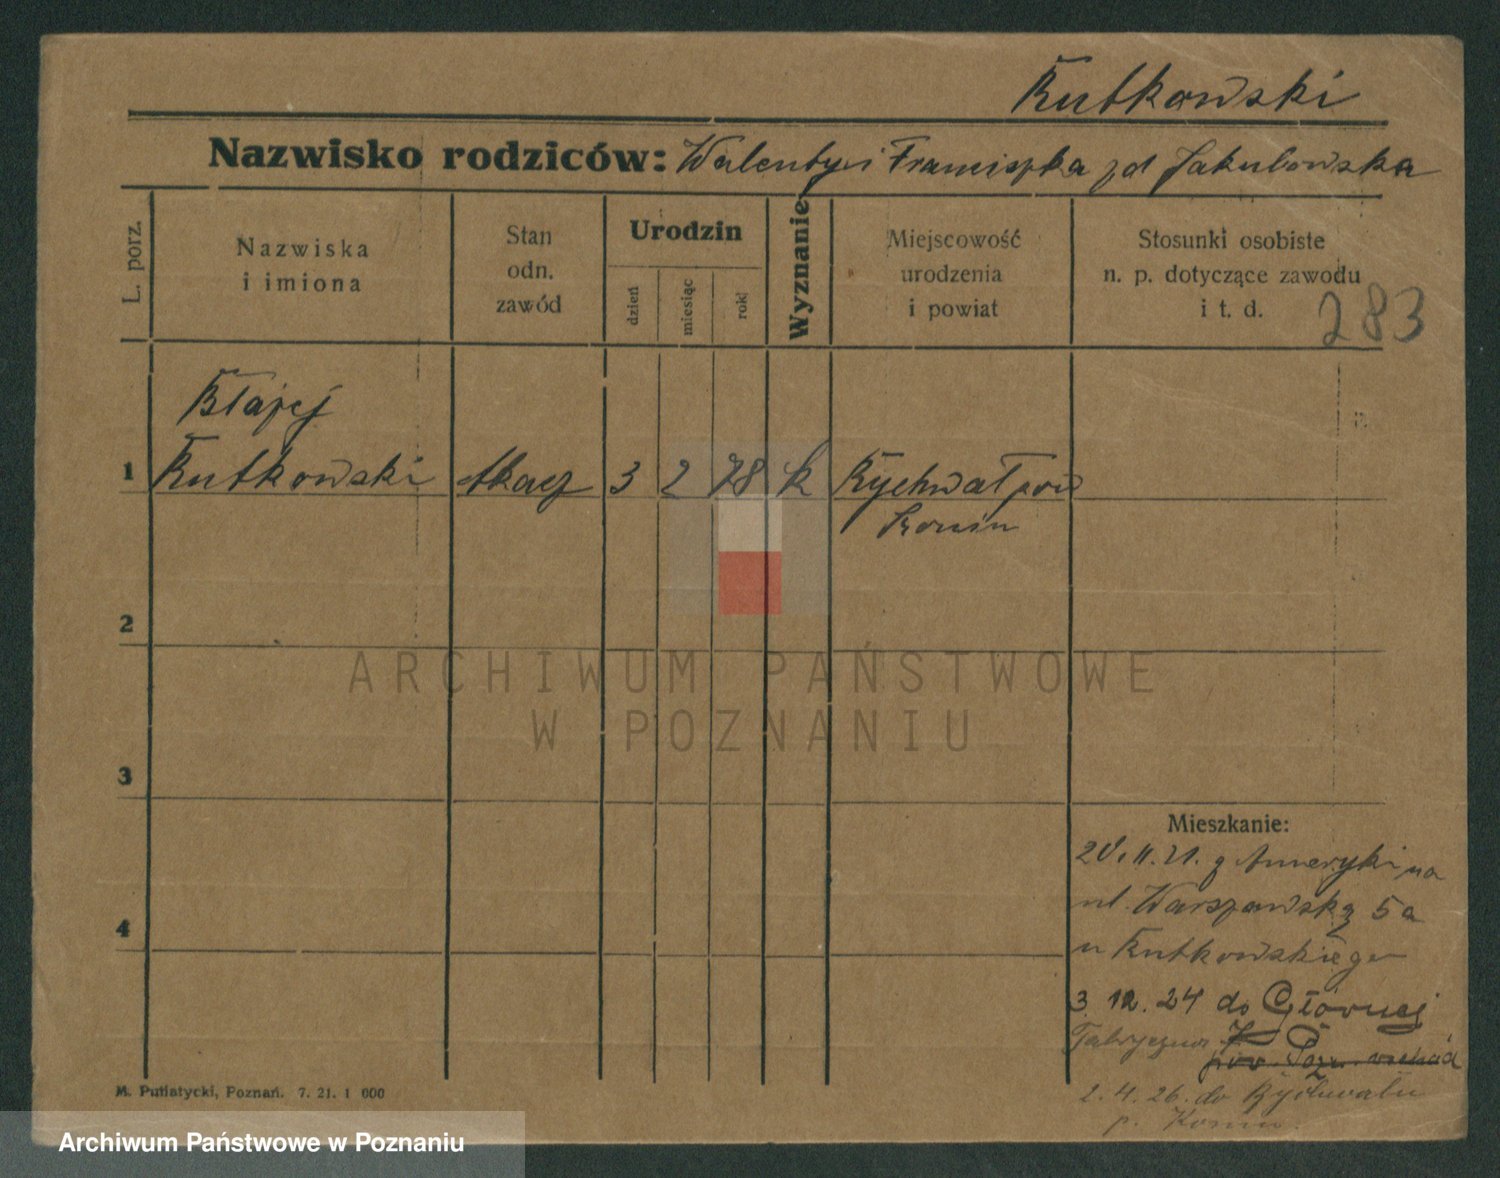 Rutkowski
Nazwisko rodziców: Walenty i Franciszka zd Jakubowska
L. porz.
Nazwiska
i imiona
Stan
odn.
zawód
Urodzin
dzień
miesiąc
rok
Wyznanie
Miejscowość
urodzenia
i powiat
Stosunki osobiste
n. p. dotyczące zawodu
i t. d.
283
Błażej
1 Rutkowski tkacz 3 2 78 k Rychwał pow
Konin
2
ARCHIWUM PAŃSTWOWE
W POZNANIU
3
Mieszkanie:
II. 21. z Ameryki na
ul. Warszawską 5a
u Rutkowskiego
4
3. 12. 24 do Głównej
Fabryczna
pow. Pozn. wschód
2. 4. 26. do Rychwału
p. Konin.
M. Putiatycki, Poznań. 7. 21. 1 000
Archiwum Państwowe w Poznaniu